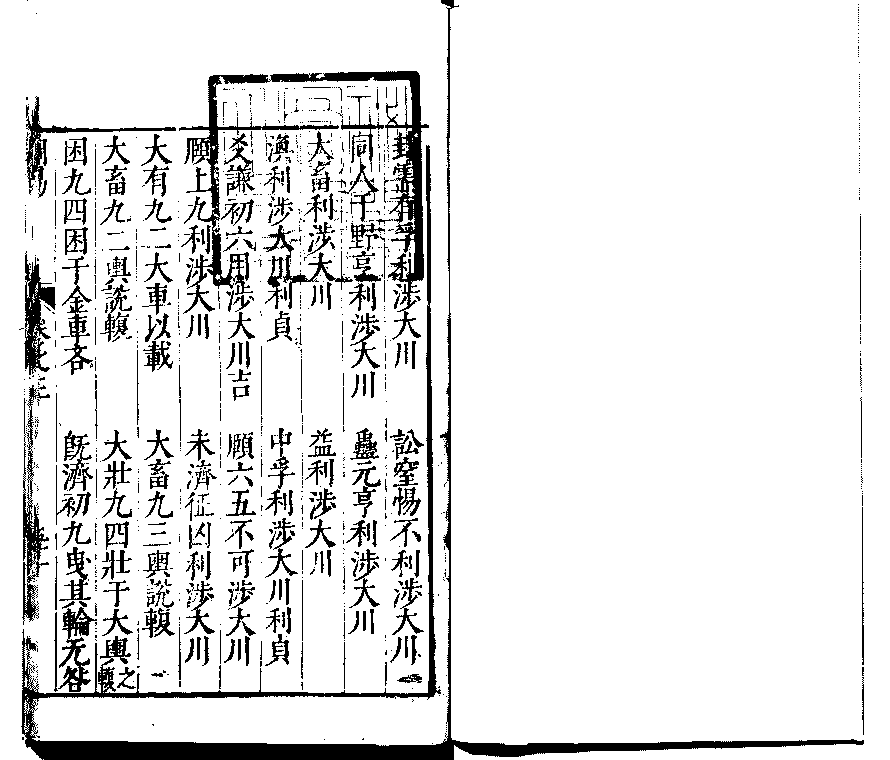 卦需有孚利涉大川 訟窒惕不利涉大川
同人于野亨利涉大川 蠱元亨利涉大川
大畜利涉大川 益利涉大川
渙利涉大川利貞 中孚利涉大川利貞
爻謙初六用涉大川吉 頤六五不可涉大川
頤上九利涉大川 未濟征凶利涉大川
大有九二大車以載 大畜九三輿說輹
大畜九二輿說輹 大壯九四壯于大輿之輹
困九四困于金車吝 旣濟初九曳其輪无咎
卷之三